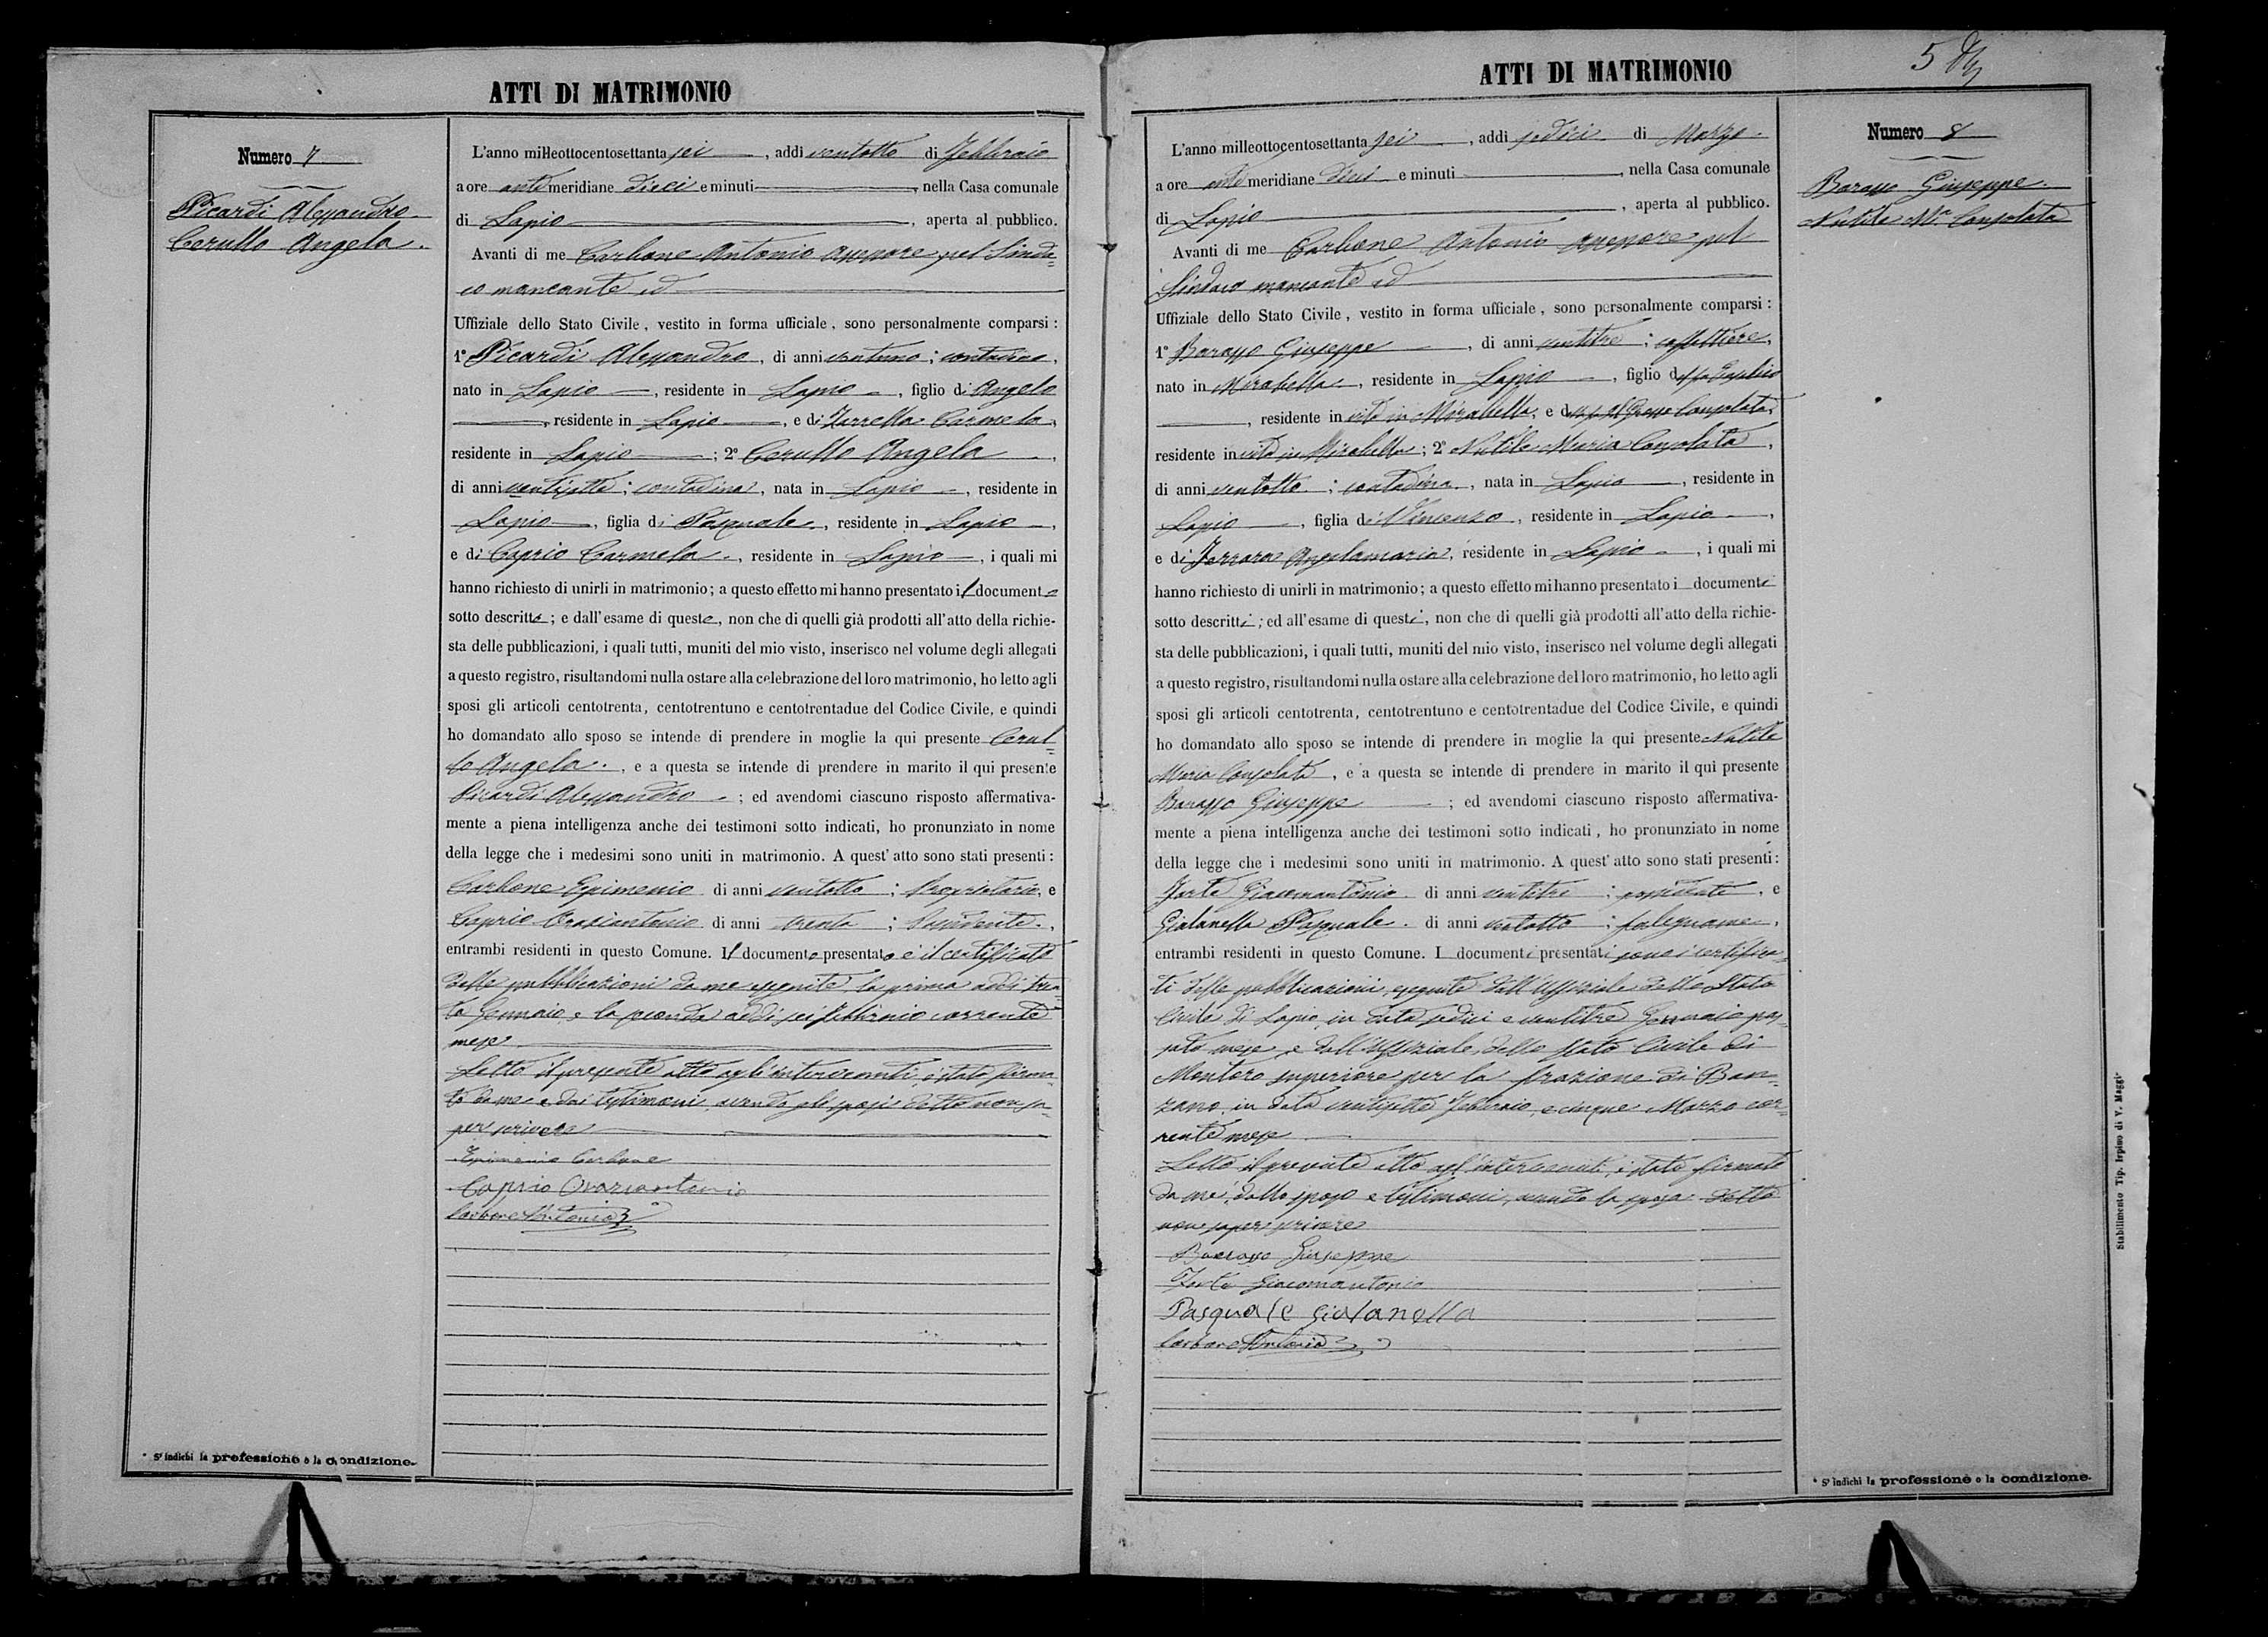 ATTI DI MATRIMONIO
Numero 7
Picardi Alessandro
Cerullo Angela.
L'anno milleottocentosettanta sei, addì ventotto di Febbraio
a ore anti meridiane dieci e minuti, nella Casa comunale
di Lapio, aperta al pubblico.
Avanti di me Carbone Antonio Assessore pel Sinda=
co mancante ed
Uffiziale dello Stato Civile, vestito in forma ufficiale, sono personalmente comparsi:
1º Picardi Alessandro, di anni ventuno; contadino,
nato in Lapio, residente in Lapio, figlio di Angelo
, residente in Lapio, e di Carmela,
residente in Lapio; 2º Cerullo Angela,
di anni ventisette; contadina, nata in Lapio, residente in
Lapio, figlia di Pasquale, residente in Lapio,
e di Caprio Carmela, residente in Lapio, i quali mi
hanno richiesto di unirli in matrimonio; a questo effetto mi hanno presentato il documento
sotto descritto; e dall'esame di questo, non che di quelli già prodotti all'atto della richie-
sta delle pubblicazioni, i quali tutti, muniti del mio visto, inserisco nel volume degli allegati
a questo registro, risultandomi nulla ostare alla celebrazione del loro matrimonio, ho letto agli
sposi gli articoli centotrenta, centotrentuno e centotrentadue del Codice Civile, e quindi
ho domandato allo sposo se intende di prendere in moglie la qui presente Cerul=
lo Angela., e a questa se intende di prendere in marito il qui presente
Picardi Alessandro; ed avendomi ciascuno risposto affermativa-
mente a piena intelligenza anche dei testimoni sotto indicati, ho pronunziato in nome
della legge che i medesimi sono uniti in matrimonio. A quest'atto sono stati presenti:
Carbone Epimenio di anni ventotto; Proprietario, e
Caprio Oraziantonio di anni trenta; Possidente,
entrambi residenti in questo Comune. Il documento presentato è il certificato
delle pubblicazioni da me eseguite, la prima addì tren=
ta Gennaio, e la seconda addì sei Febbraio corrente
mese
Letto il presente atto agl'intervenuti, è stato firma=
to da me e dai testimoni, avendo gli sposi detto non sa=
per scrivere
Epimenio Carbone
Caprio Oraziantonio
Carbone Antonio
* S'indichi la professione o la condizione.
ATTI DI MATRIMONIO
5
Numero 8
Barasso Giuseppe.
Nutile Mª Consolata
L'anno milleottocentosettanta sei, addì sedici di Marzo
a ore anti meridiane dieci e minuti, nella Casa comunale
di Lapio, aperta al pubblico.
Avanti di me Carbone Antonio Assessore pel
Sindaco mancante ed
Uffiziale dello Stato Civile, vestito in forma ufficiale, sono personalmente comparsi:
1º Barasso Giuseppe, di anni ventitre; caffettiere,
nato in Mirabella, residente in Lapio, figlio del fu
, residente in vita in Mirabella, e della fu Consolata,
residente in vita in Mirabella; 2º Nutile Maria Consolata,
di anni ventotto; contadina, nata in Lapio, residente in
Lapio, figlia di Vincenzo, residente in Lapio,
e di Ferrara Angelamaria, residente in Lapio, i quali mi
hanno richiesto di unirli in matrimonio; a questo effetto mi hanno presentato i documenti
sotto descritti; ed all'esame di questi, non che di quelli già prodotti all'atto della richie-
sta delle pubblicazioni, i quali tutti, muniti del mio visto, inserisco nel volume degli allegati
a questo registro, risultandomi nulla ostare alla celebrazione del loro matrimonio, ho letto agli
sposi gli articoli centotrenta, centotrentuno e centotrentadue del Codice Civile, e quindi
ho domandato allo sposo se intende di prendere in moglie la qui presente Nutile
Maria Consolata, e a questa se intende di prendere in marito il qui presente
Barasso Giuseppe; ed avendomi ciascuno risposto affermativa-
mente a piena intelligenza anche dei testimoni sotto indicati, ho pronunziato in nome
della legge che i medesimi sono uniti in matrimonio. A quest'atto sono stati presenti:
Forte Giacomantonio di anni ventitre; possidente, e
Gialanella Pasquale. di anni ventotto; falegname,
entrambi residenti in questo Comune. I documenti presentati sono i certifica=
ti delle pubblicazioni, eseguite dall'Uffiziale dello Stato
Civile di Lapio, in data sedici e ventitre Gennaio pas=
sato mese, e dall'Uffiziale dello Stato Civile di
Montoro superiore per la frazione di Ban=
zano, in data ventisette Febbraio, e cinque Marzo cor=
rente mese
Letto il presente atto agl'intervenuti, è stato firmato
da me, dallo sposo e testimoni, avendo la sposa detto
non saper scrivere
Barasso Giuseppe
Forte Giacomantonio
Pasquale Gialanella
Carbone Antonio
* S'indichi la professione o la condizione.
Stabilimento Tip. Irpino di V. Maggi-